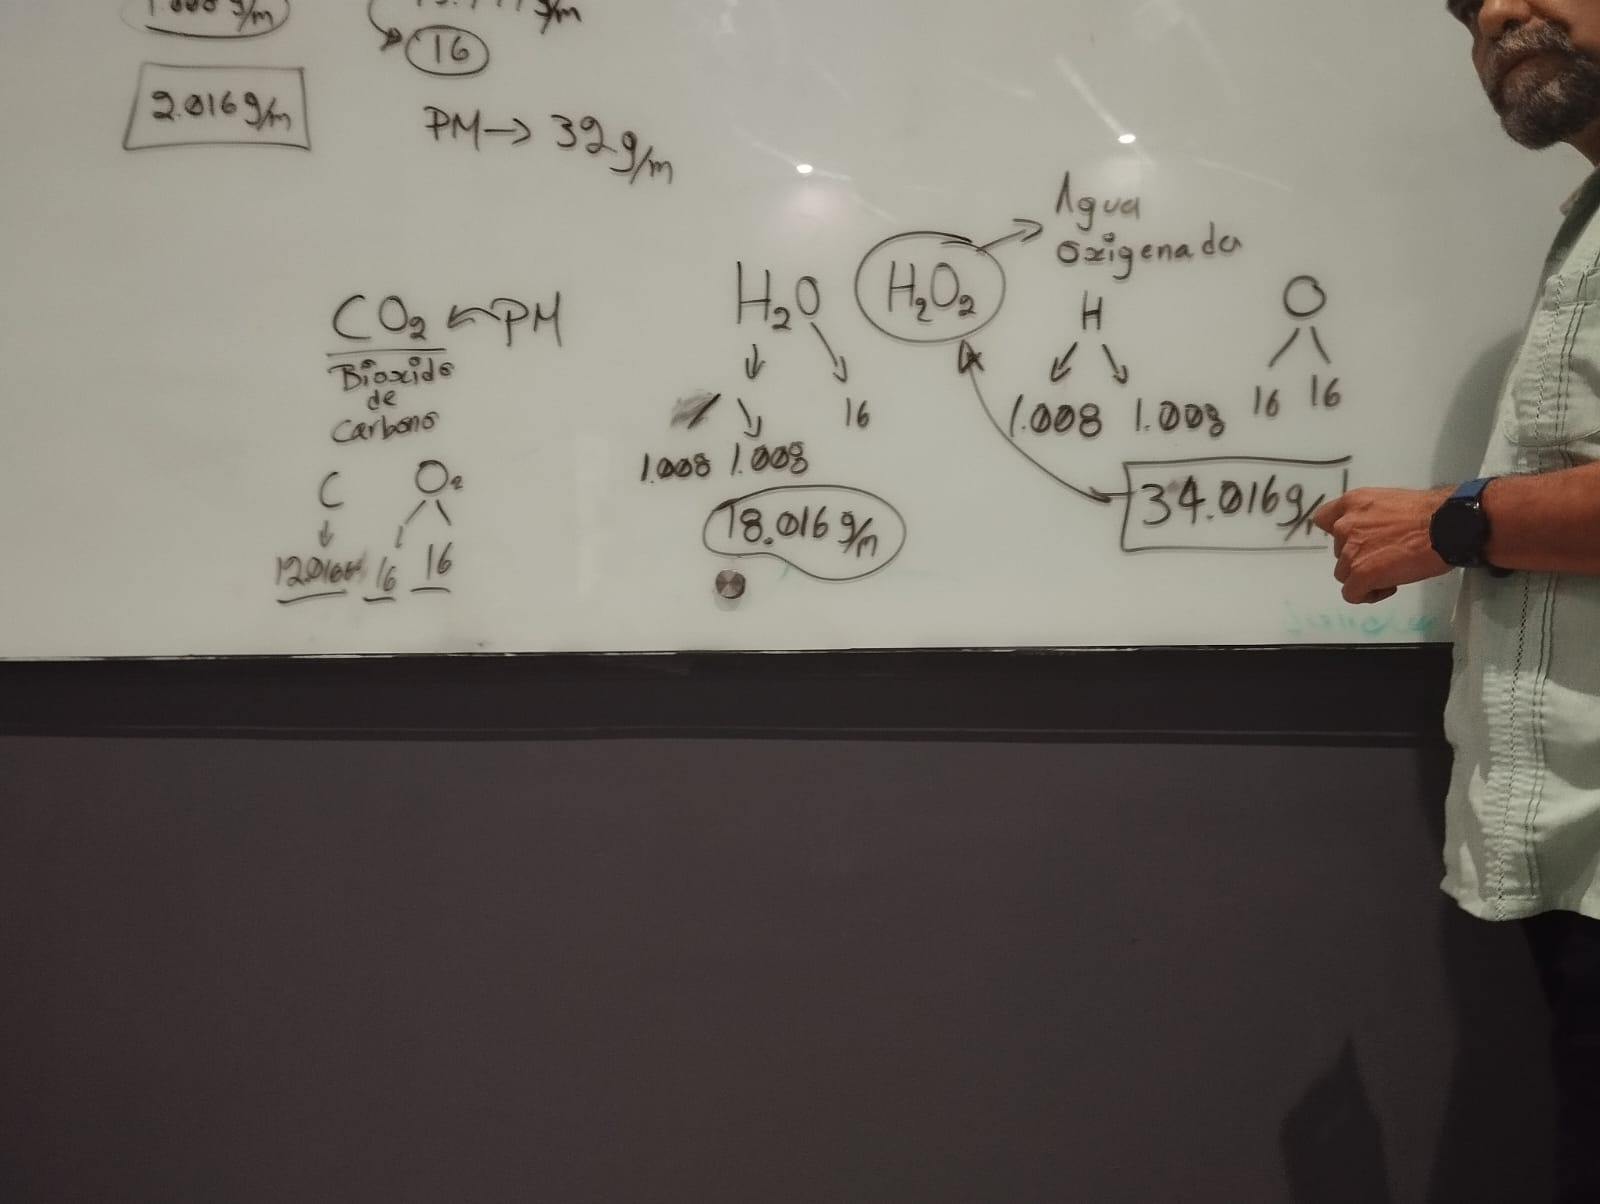 2.016 g/m
16
PM → 32 g/m
CO₂ ← PM
Bioxido
de
Carbono
C O₂
16 16
H₂O
16
1.008 1.008
18.016 g/m
H₂O₂ → Agua
oxigenada
H O
1.008 1.008 16 16
34.016 g/